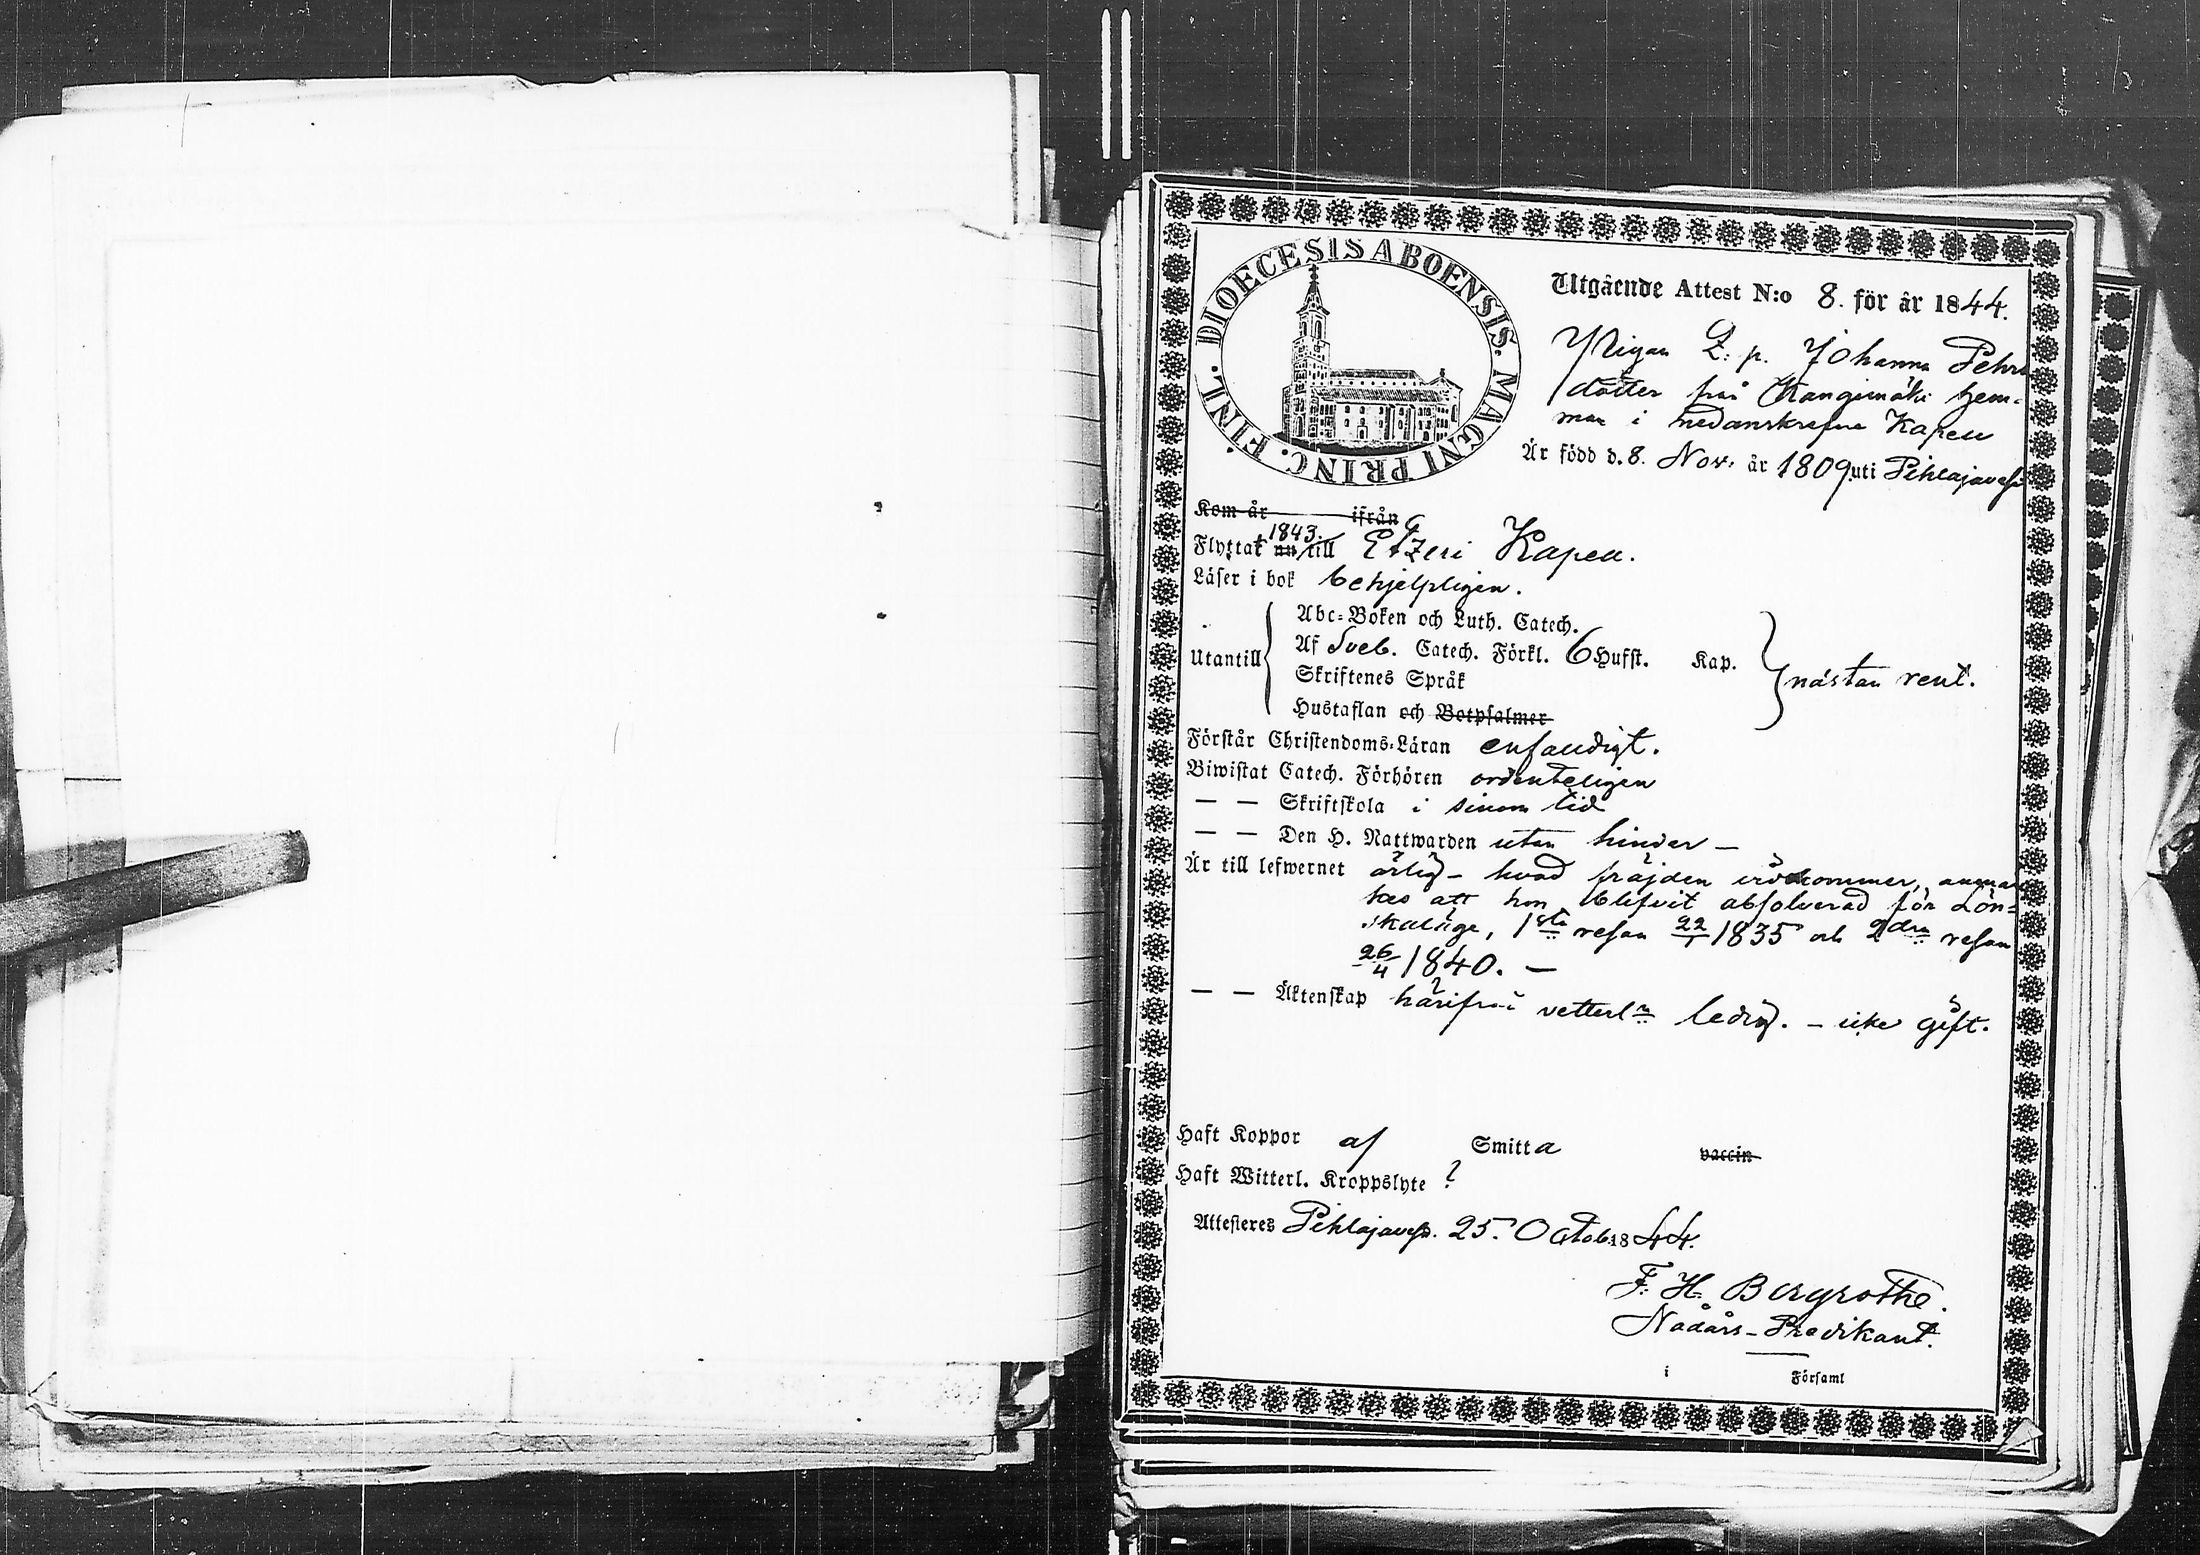 DIOECESIS ABOENSIS. MAGNI PRINC. FINL.
Utgående Attest N:o 8. för år 1844.
Pigan Q: p. Johanna Pehrs
dotter från Kangimäki hem-
man i nedanskrefne Kapell
Är född d. 8. Nov: år 1809 uti Pihlajavesi
Kom år ifrån
Flyttat 1843. nu till Etzeri Kapell.
Läser i bok behjelpligen.
Abc-Boken och Luth. Catech.
Utantill Af Sveb. Catech. Förkl. 6 Hufst. Kap. nästan rent.
Skriftenes Språk
Hustaflan och Botpsalmer
Förstår Christendoms-Läran enfaldigt.
Biwistat Catech. Förhören ordenteligen
— — Skriftskola i sinom tid
— — Den H. Nattwarden utan hinder —
Är till lefwernet ärlig — hvad fräjden widkommer, anmär
kes att hon blifvit absolverad för Lön-
skaläge, 1sta resan 22/1 1835 och 2dra resan
26/4 1840. —
— — Äktenskap härifrån vetterl:n ledig. — icke gift.
Haft Koppor af Smitta vaccin
Haft Witterl. Kroppslyte ?
Attesteres Pihlajavesi. 25. Octob. 1844.
F: H. Bergrothe.
Nådårs-Predikant.
i Församl